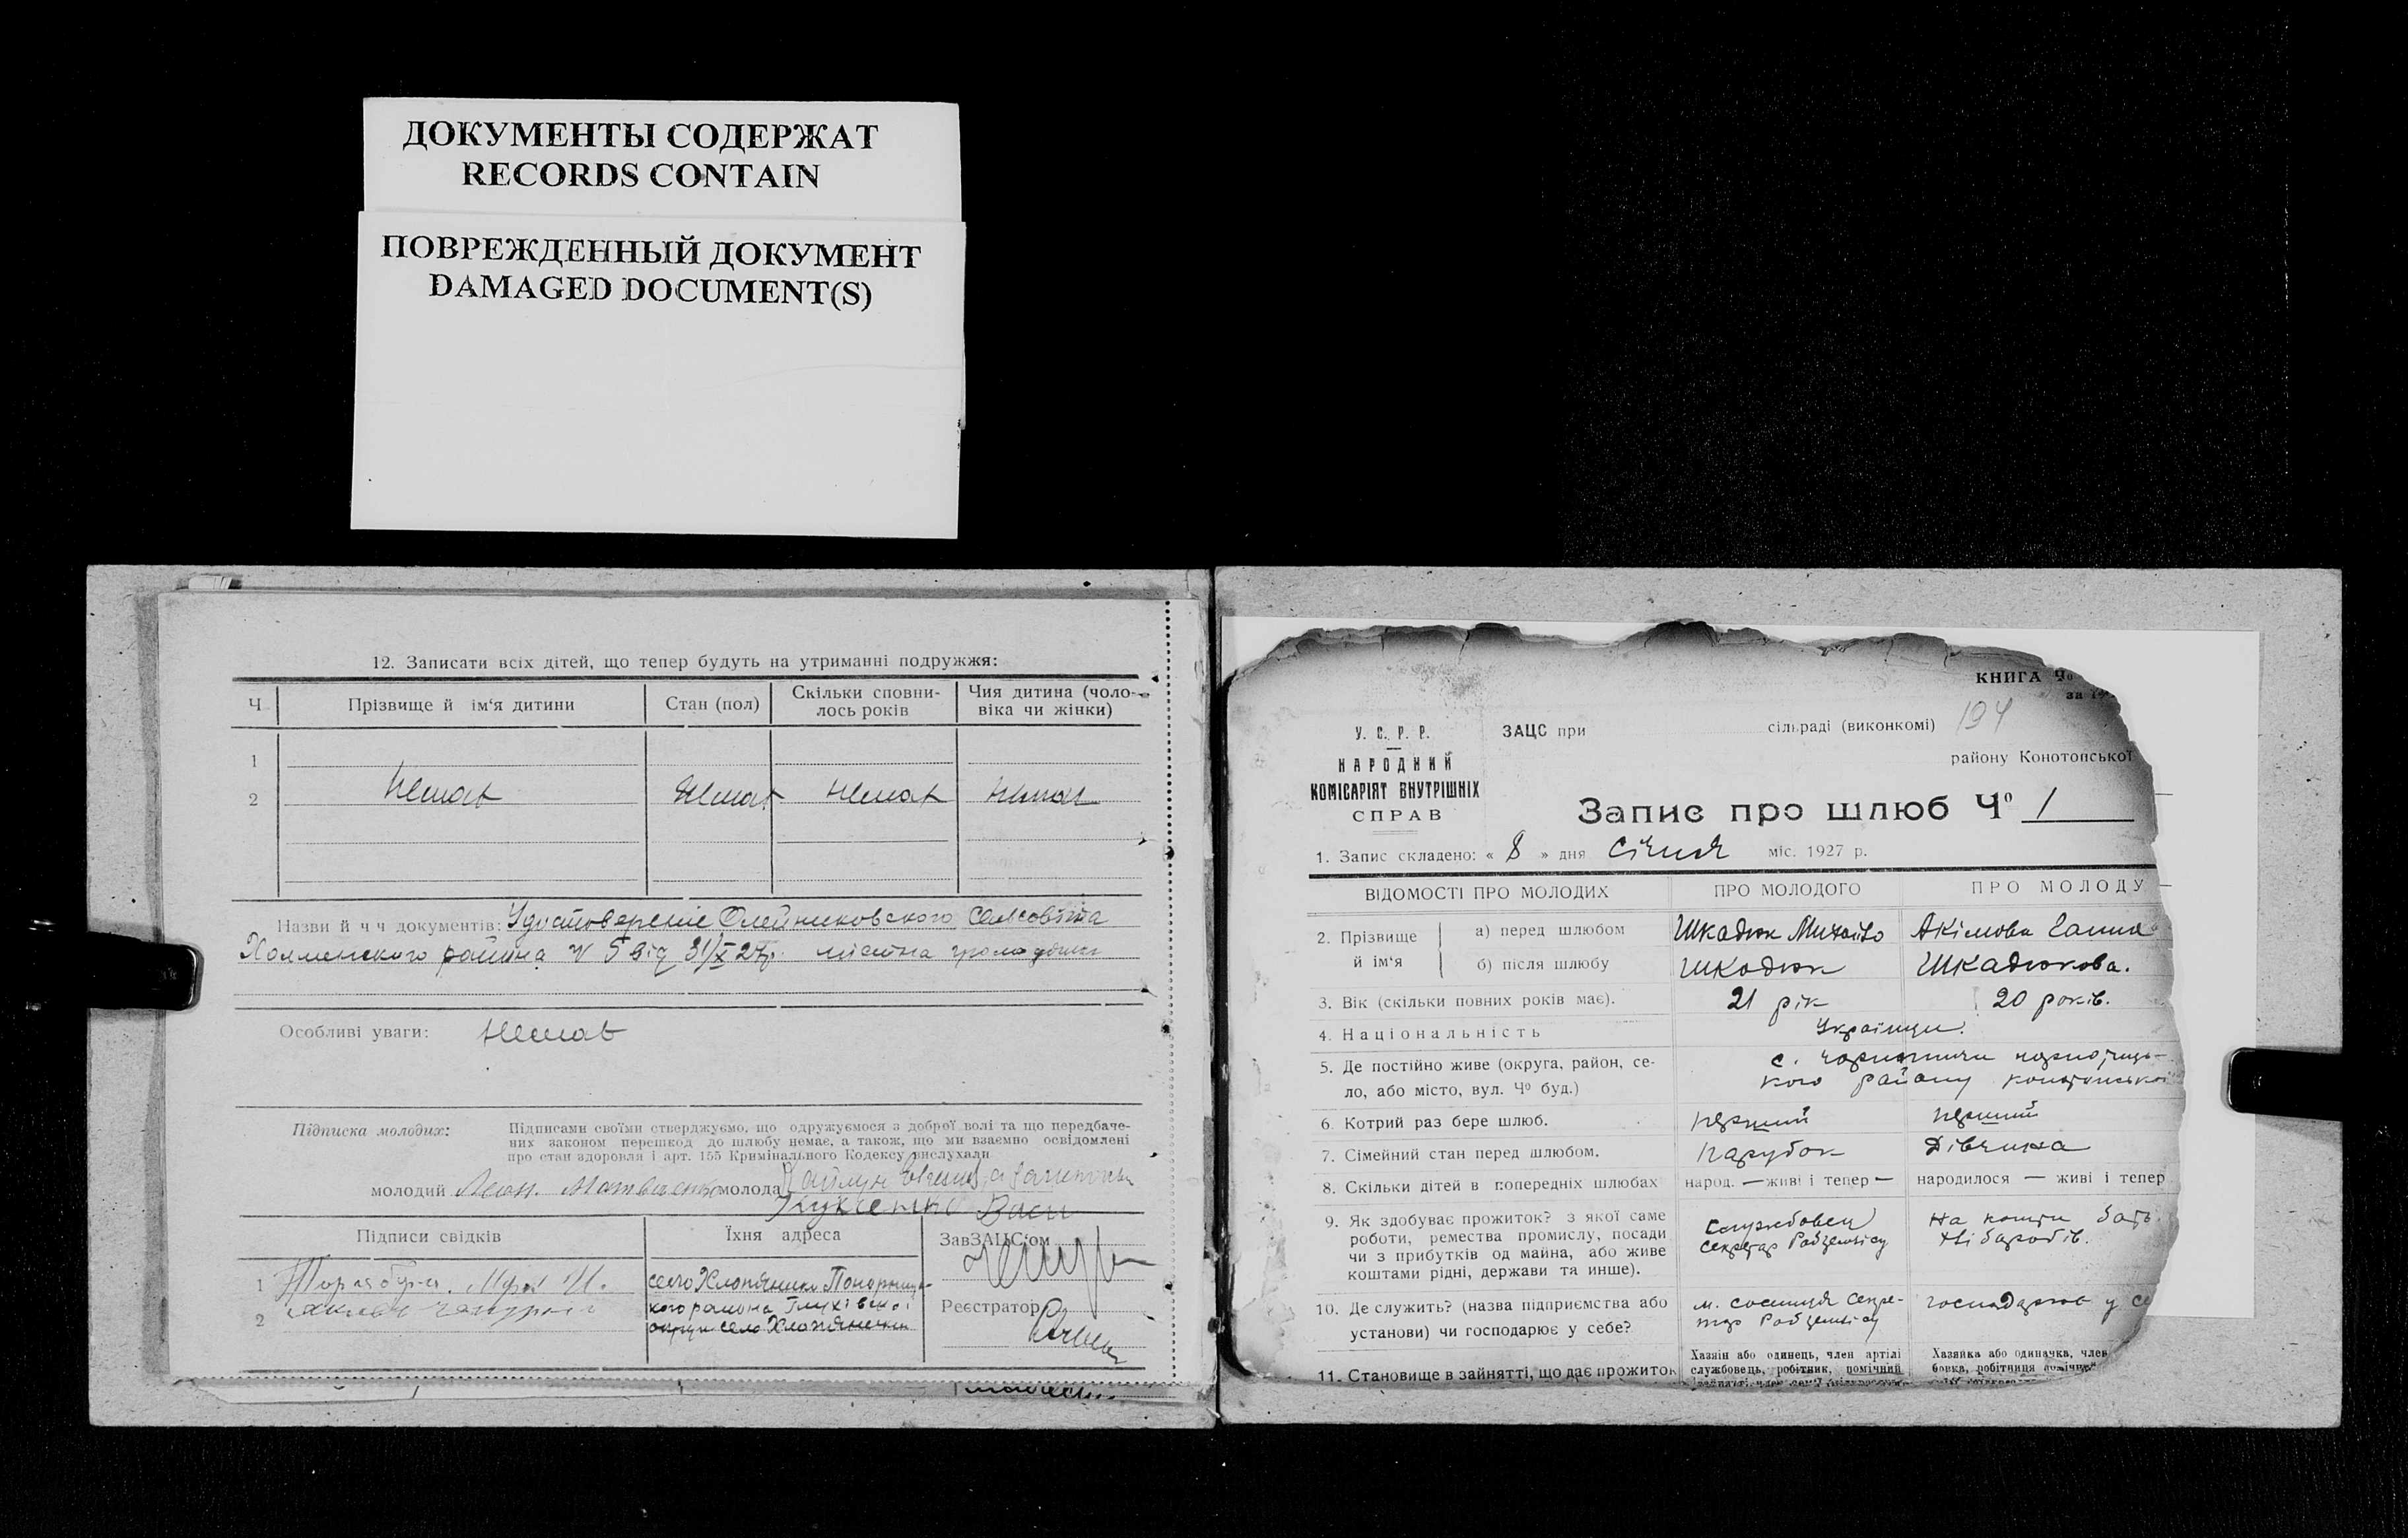 ДОКУМЕНТЫ СОДЕРЖАТ
RECORDS CONTAIN
ПОВРЕЖДЕННЫЙ ДОКУМЕНТ
DAMAGED DOCUMENT(S)
12. Записати всіх дітей, що тепер будуть на утриманні подружжя:
Ч Прізвище й ім‘я дитини Стан (пол) Скільки сповни- Чия дитина (чоло-
лось років віка чи жінки)
1
2 Немає Немає Немає Немає
Назви й ч ч документів: Удостоверение Олейниковского сельсовіта
Холменского района № 5 від 31/X 27р.
Особливі уваги: Немає
Підписка молодих: Підписами своїми стверджуємо, що одружуємося з доброї волі та що передбаче-
них законом перешкод до шлюбу немає, а також, що ми взаємно освідомлені
про стан здоровля і арт. 155 Кримінального Кодексу вислухали
молодий молода
Підписи свідків Їхня адреса ЗавЗАЦС‘ом
1 село Хлопяники Понорниць-
кого района Глухівської
2 округи село Хлопяники Реєстратор
КНИГА Ч⁰
за 19
194
У. С. Р. Р. ЗАЦС при сільраді (виконкомі)
НАРОДНИЙ району Конотопської
КОМІСАРІЯТ ВНУТРІШНІХ
СПРАВ
Запис про шлюб Ч⁰ 1
1. Запис складено: « 8 » дня Січня міс. 1927 р.
ВІДОМОСТІ ПРО МОЛОДИХ ПРО МОЛОДОГО ПРО МОЛОДУ
2. Прізвище а) перед шлюбом Шкадюк Михайло Акімова Ганна
й ім‘я б) після шлюбу Шкадюк Шкадюкова.
3. Вік (скільки повних років має). 21 рік 20 років.
4. Національність Українци.
5. Де постійно живе (округа, район, се- с.
ло, або місто, вул. Ч⁰ буд.) кого району конотопської
6. Котрий раз бере шлюб. перший перший
7. Сімейний стан перед шлюбом. Парубок Дівчина
8. Скільки дітей в попередніх шлюбах народ. — живі і тепер — народилося — живі і тепер
9. Як здобуває прожиток? з якої саме Службовец На кошти бать
роботи, ремества промислу, посади секретар Робземлісу
чи з прибутків од майна, або живе
коштами рідні, держави та инше).
10. Де служить? (назва підприємства або м. сосниця секре- господарює у се
установи) чи господарює у себе? тар Робземлісу
11. Становище в зайнятті, що дає прожиток Хазяїн або одинець, член артілі Хазяйка або одиначка, член
службовець, робітник, помічний бовка, робітниця помічна